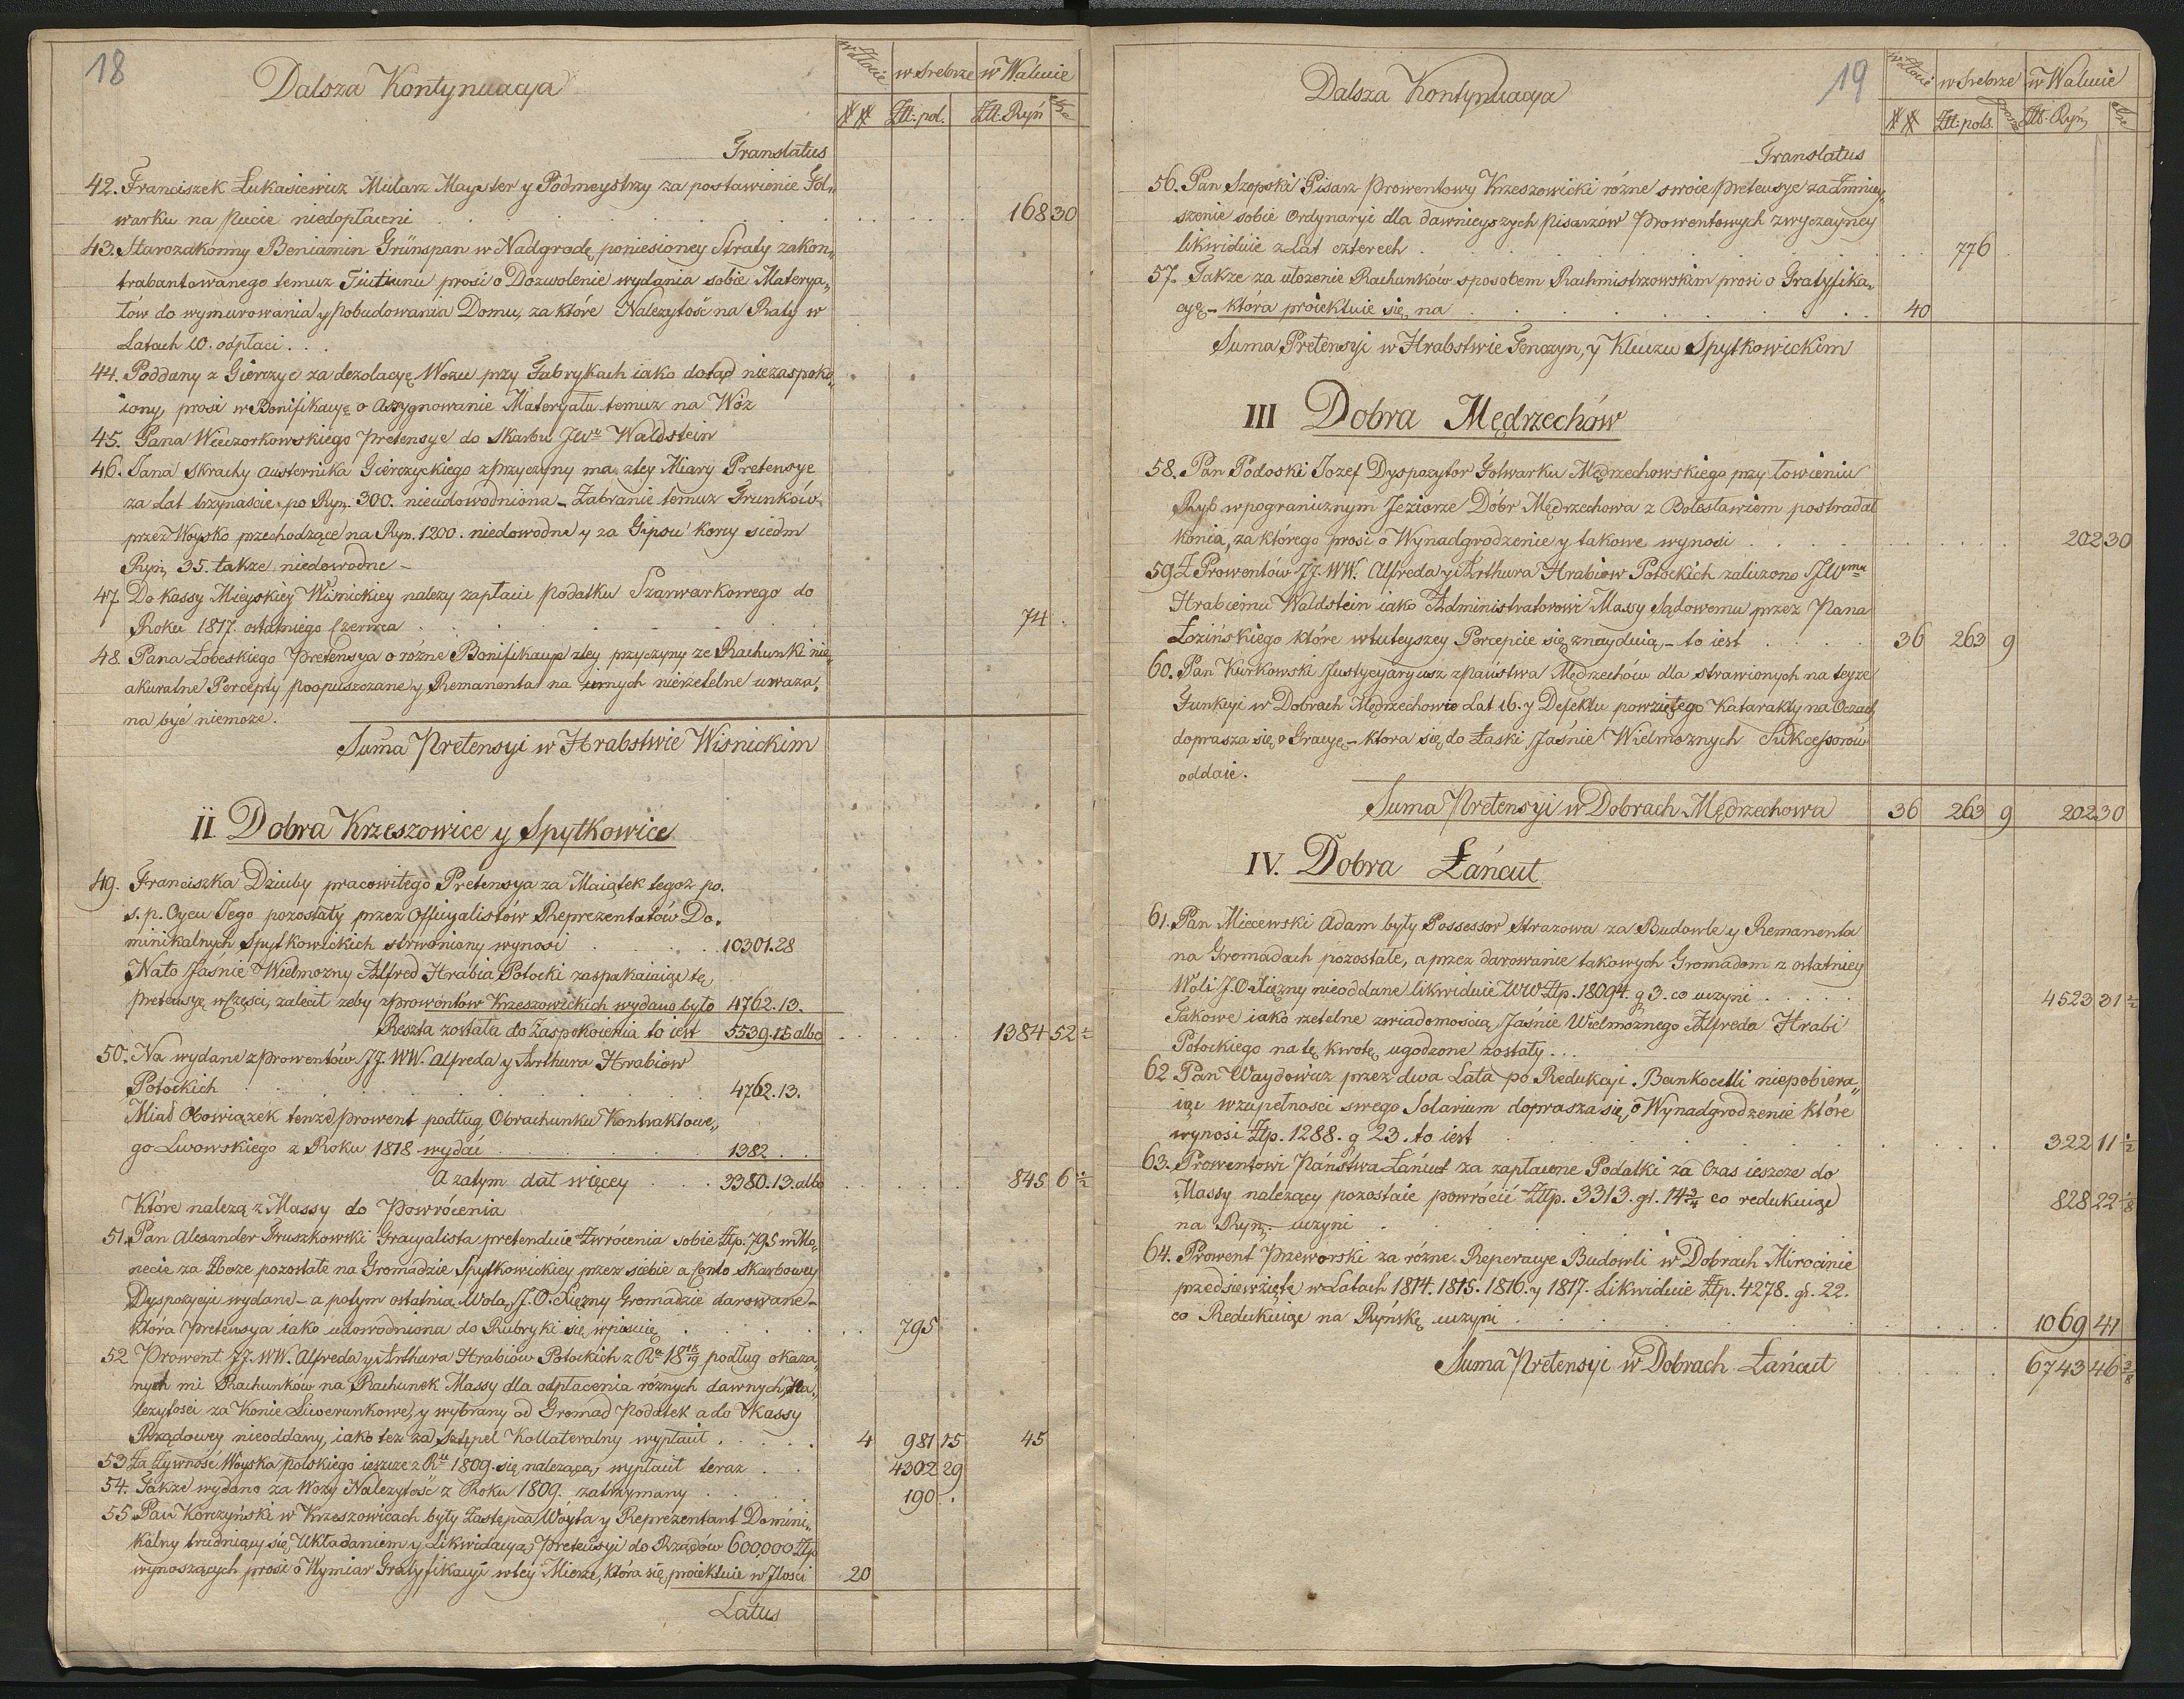 18
Dalsza Kontynuacya
w Złocie w Srebrze w Walucie
## Złt. pol. Złt. Ryń Xre
Translatus
42. Franciszek Łukasiewicz Mularz Mayster y Podmeystrzy za postawienie Fol„
warku na Pucie niedopłaceni . . . . 168 30
43. Starozakonny Beniamin Grünspan w Nadgrodę poniesioney Straty zakon„
trabantowanego temuz Tiutiunu prosi o Dozwolenie wydania sobie Materya„
łów do wymurowania y Pobudowania Domu, za które Nalezytość na Raty w
Latach 20. odpłaci . . .
44. Poddany z Gierczyc za dezolacyę Wozu przy Fabrykach iako dotąd niezaspoko„
iony, prosi w Bonifikacyę o Assygnowanie Materyału temuz na Wóz
45. Pana Wieczorkowskiego Pretensye do Skarbu JWo Waldstein
46. Jana Skrachy Austernika Gierczyckiego z przyczyny ma zley Miary Pretensye
za Lat trzynaście po Ryn. 300. nieudowodniona – Zabranie temuz Trunków
przez Woysko przechodzące na Ryn. 1200. niedowodne y za Gipsu korcy siedm
Ryn. 35. także niedowodne –
47. Do Kassy Mieyskiey Wisnickiey nalezy zapłacić podatku Szarwarkowego do
Roku 1817. ostatniego Czerwca . . . . 74 .
48. Pana Łobeskiego Pretensya o rózne Bonifikacye zley przyczyny ze Rachunki nie„
akuratne Percepty poopuszczane y Remanenta na innych nierzetelne uwaza„
na być niemoze.
Suma Pretensyi w Hrabstwie Wisnickim
II Dobra Krzeszowice y Spytkowice
49. Franciszka Dziuby pracowitego Pretensya za Maiątek tegoz po.
s. p. Oycu Jego pozostały przez Officyalistów Reprezentatów Do„
minikalnych Spytkowickich strwoniony wynosi . . . 10301.28
Nato Jaśnie Wielmozny Alfred Hrabia Potocki zaspakaiaiąc tę
Pretensyę w Części, zalecił zeby z prowentów Krzeszowickich wydano było 4762.13.
Reszta została do Zaspokoienia to iest 5539.15 albo . . . 1384 52½
50. Na wydane z Prowentów JJ. WW. Alfreda y Arthura Hrabiow
Potockich . . . 4762.13.
Miał Obowiązek tenze Prowent podług Obrachunku Kontraktowe„
go Lwowskiego z Roku 1818 wydać . . . 1382 . .
A zatym dał więcey . . . 3380.13. albo . . . 845 6½
Które nalezą z Massy do Powrócenia
51. Pan Alexander Gruszkowski Gracyalista pretenduie Zwrócenia sobie Złp. 795 w Mo„
necie za Zboze pozostałe na Gromadzie Spytkowickiey przez siebie a Conto Skarbowey
Dyspozycyi wydane – a potym ostatnią Wolą J. O. Xięzny Gromadzie darowane –
która Pretensya iako udowodniona do Rubryki się wpiścią . . . 795
52 Prowent JJ. WW. Alfreda y Arthura Hrabiów Potockich z Ru 18 18/19 podług okaza„
nych mi Rachunków na Rachunek Massy dla odpłacenia róznych dawnych Na„
lezytości za Konie Liwerunkowe, y wybrany od Gromad Podatek a do Kassy
Rządowey nieoddany, iako tez za Sztępel Kollateralny wypłacił . . . 4 981 15 45
53 Za Zywność Woyska polskiego ieszcze z Ru 1809. się nalezącą, wypłacił teraz . . 4302 29
54. Także wydano za Wozy Nalezytość z Roku 1809. zatrzymany . . . 190 . .
55 Pan Korczyński w Krzeszowicach były Zastępca Wóyta y Reprezentant Domini„
kalny trudniący się Układaniem y Likwidacyą Pretensyi do Rządów 600,000 Złp
wynoszących prosi o Wymiar Gratyfikacyi w tey Mierze, która się proiektuie w Ilości 20
Latus
19
Dalsza Kontynuacya
w Złocie w Srebrze w Walucie
## Złt. pols. grosze Złt. Ryń. Xre
Translatus
56. Pan Szopski Pisarz Prowentowy Krzeszowicki rózne swoie Pretensye za Zmniey„
szenie sobie Ordynaryi dla dawnieyszych Pisarzów Prowentowych zwyczayney
likwiduie z Lat czterech . . . 776
57. Także za ułozenie Rachunków sposobem Rachmistrzowskim prosi o Gratyfika„
cyę – która proiektuie się na . . . 40
Suma Pretensyi w Hrabstwie Tenczyn, y Kluczu Spytkowickim
III Dobra Mędrzechów
58. Pan Podoski Jozef Dyspozytor Folwarku Mędrzechowskiego przy łowieniu
Ryb w pogranicznym Jeziorze Dóbr Mędrzechowa z Bolesławiem postradał
Konia, za którego prosi o Wynadgrodzenie y takowe wynosi . . . 202 30
59 Z Prowentów JJ. WW. Alfreda y Arthura Hrabiow Potockich zaliczono JWmu
Hrabiemu Waldstein iako Administratorowi Massy Sądowemu przez Pana
Łozińskiego które w tuteyszey Percepcie się znayduią, – to iest . . . 36 263 9
60. Pan Kurkowski Justycyaryusz z Państwa Mędrzechów dla strawionych na teyze
Funkcyi w Dobrach Mędrzechowie Lat 16. y Defektu powziętego Katarakty na Oczach
doprasza się o Gracyę – ktora się do Łaski Jaśnie Wielmoznych Sukcessorów
oddaie.
Suma Pretensyi w Dobrach Mędrzechowa 36 263 9 202 30
IV. Dobra Łańcut
61. Pan Miecewski Adam były Possessor Strazowa za Budowle y Remanenta
na Gromadach pozostałe, a przez darowanie takowych Gromadom z ostatniey
Woli J. O. Xięzny nieoddane likwiduie WW Złp. 18094. g 3. co uczyni . . . 4523 31½
Takowe iako rzetelne z wiadomością Jaśnie Wielmoznego Alfreda Hrabi
Potockiego na tę kwotę ugodzone zostały . . .
62 Pan Waydowicz przez dwa Lata po Redukcyi Bankocetli niepobiera„
iąc w zupełności swego Solarium doprasza się o Wynadgrodzenie które
wynosi Złp. 1288. g 23. to iest . . . 322 11½
63. Prowentowi Państwa Łańcut za zapłacone Podatki za Czas ieszcze do
Massy nalezący pozostaie powrócić Złp. 3313. gr. 14¾ co redukuiąc
na Ryn. uczyni . . . 828 22⅛
64. Prowent Przeworski za rózne Reperacye Budowli w Dobrach Mirocinie
przedsiewzięte w Latach 1814. 1815. 1816. y 1817. Likwiduie Złp. 4278. gr. 22.
co Redukuiąc na Ryńskę uczyni . . . 1069 41
Suma Pretensyi w Dobrach Łańcut . . . 6743 46 3/8